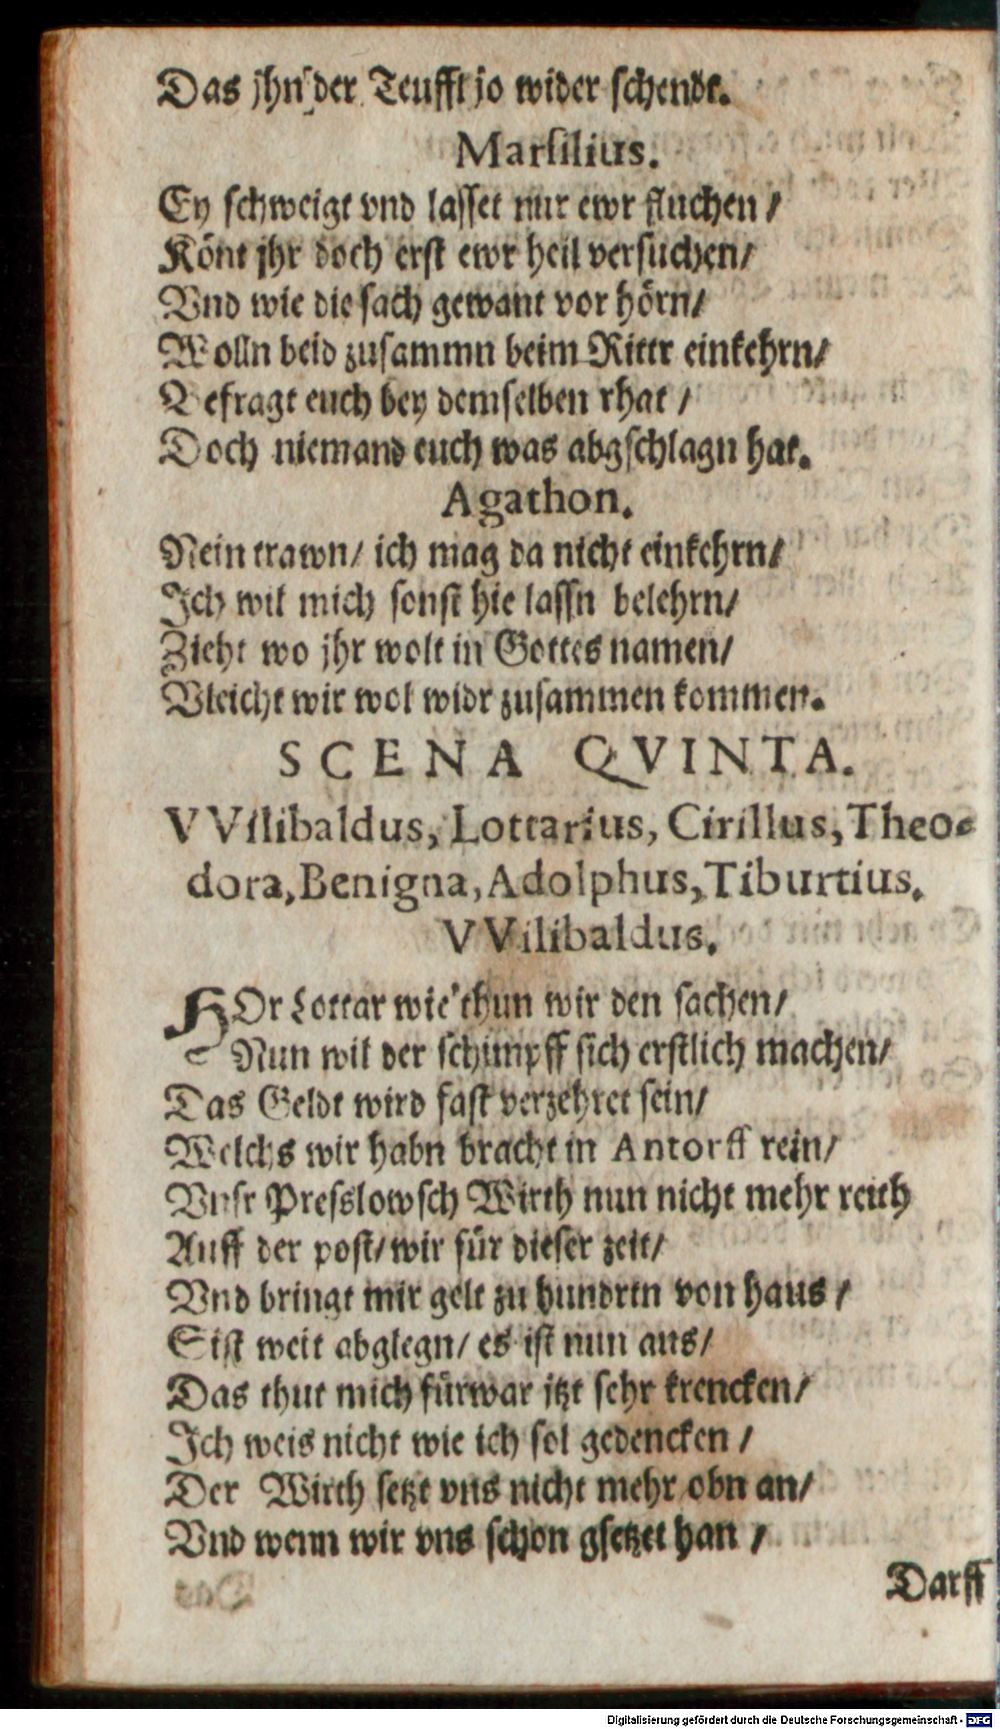 Das jhn der Teuffl jo wider schendt.
Marsilius.
Ey schweigt vnd lasset mir ewr fluchen /
Könt jhr doch erst ewr heil versuchen/
Vnd wie die sach gewant vor hörn/
Wolln beid zusammn beim Rittr einkehrn/
Befragt euch bey demselben rhat /
Doch niemand euch was abgschlagn hat.
Agathon.
Nein trawn/ ich mag da nicht einkehrn/
Ich wil mich sonst hie lassn belehrn/
Zieht wo jhr wolt in Gottes namen/
Vleicht wir wol widr zusammen kommen.
SCENA QVINTA.
VVilibaldus, Lottarius, Cirillus, Theo-
dora, Benigna, Adolphus, Tiburtius.
VVilibaldus.
HOr Lottar wie thun wir den sachen/
Nun wil der schimpff sich erstlich machen/
Das Geldt wird fast verzehret sein/
Welchs wir habn bracht in Antorff rein/
Vnsr Presslowsch Wirth nun nicht mehr reith
Auff der post/ wir für dieser zeit/
Vnd bringt mir gelt zu hundrtn von haus /
Sist weit abglegn/ es ist nun aus/
Das thut mich fürwar itzt sehr krencken/
Ich weis nicht wie ich sol gedencken /
Der Wirth setzt vns nicht mehr obn an/
Vnd wenn wir vns schon gsetzet han /
Darff
Digitalisierung gefördert durch die Deutsche Forschungsgemeinschaft - DFG